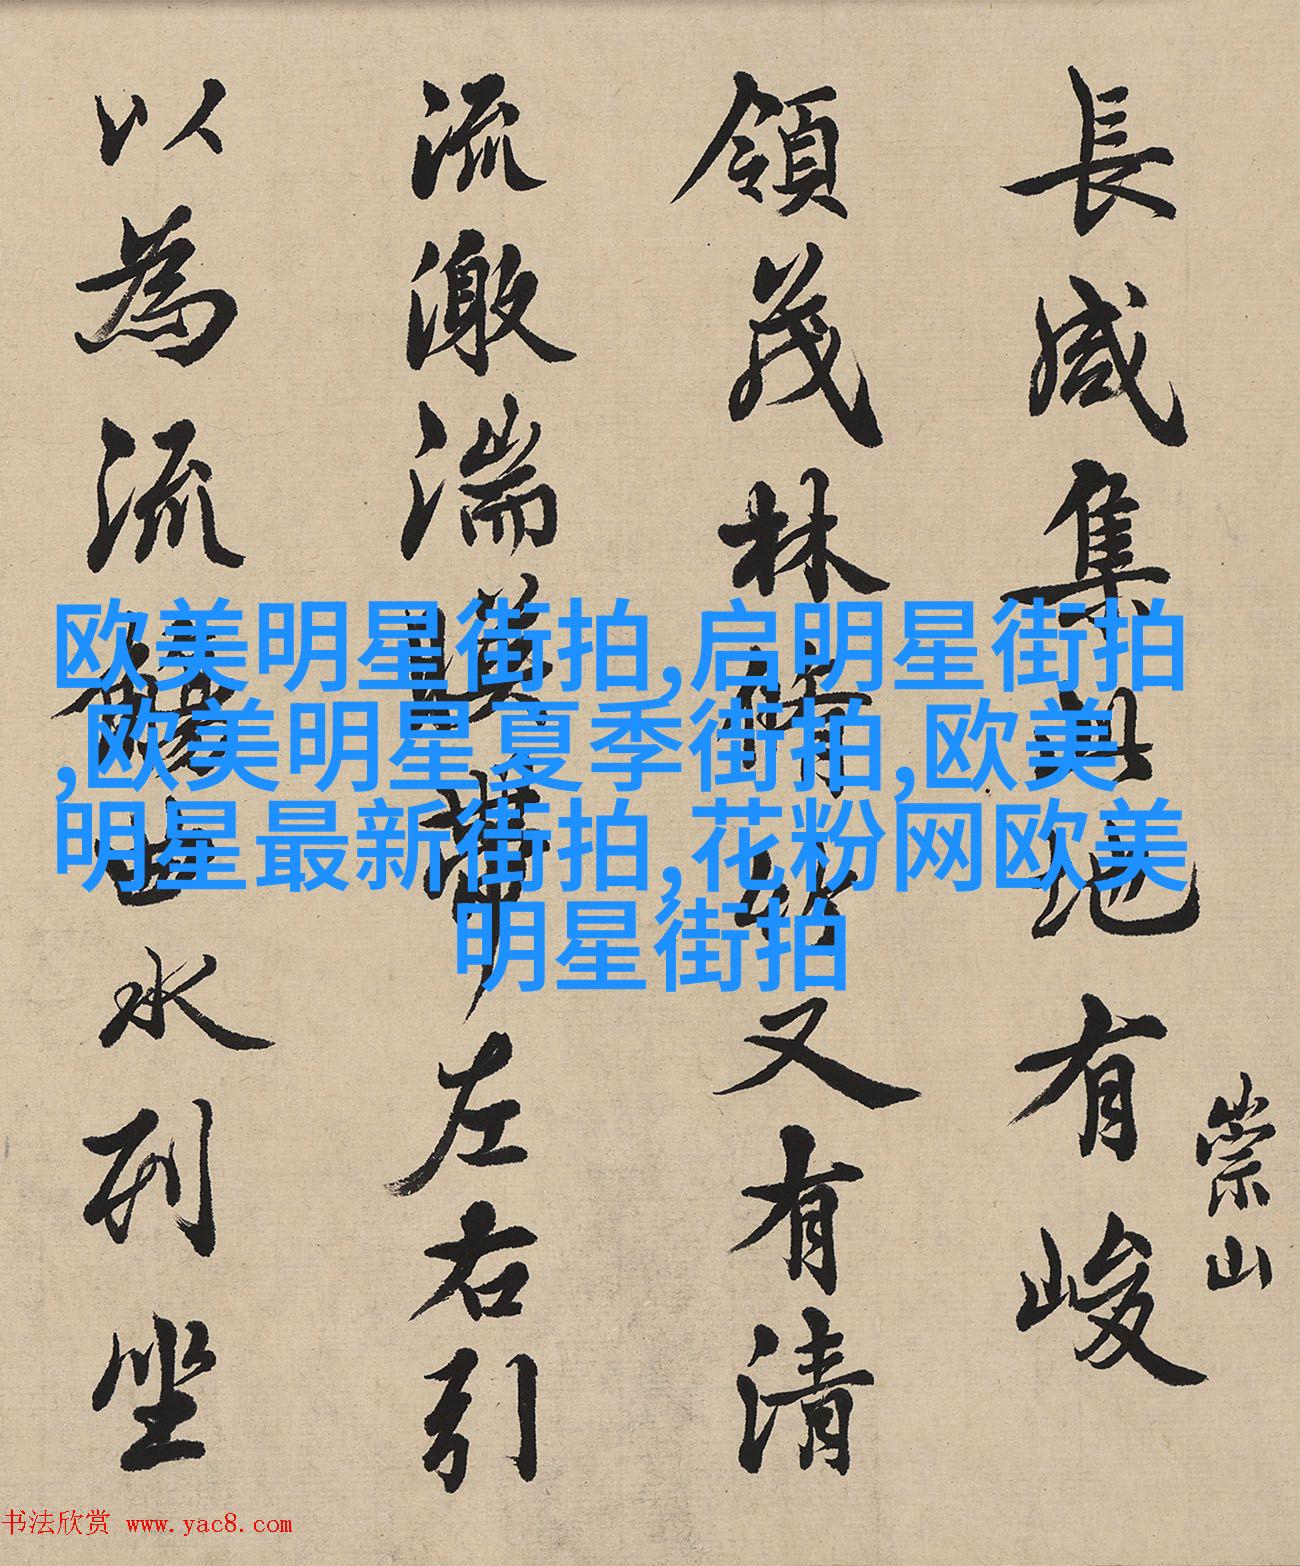 長咸集此地有峻
崇山
領茂林脩竹又有清
流激湍暎帶左右引
以為流觴曲水列坐
欧美明星街拍,启明星街拍
,欧美明星夏季街拍,欧美
明星最新街拍,花粉网欧美
明星街拍
书法欣赏 www.yac8.com